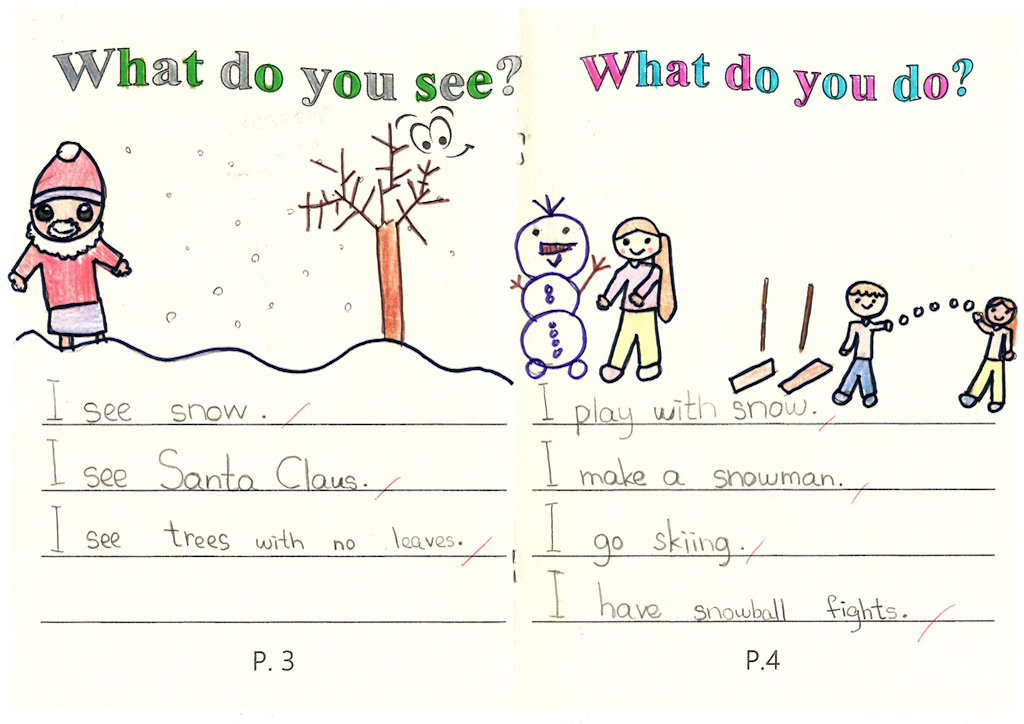 What do you see?
I see snow.
I see Santa Claus.
I see trees with no leaves.
P. 3
What do you do?
I play with snow.
I make a snowman.
I go skiing.
I have snowball fights.
P.4